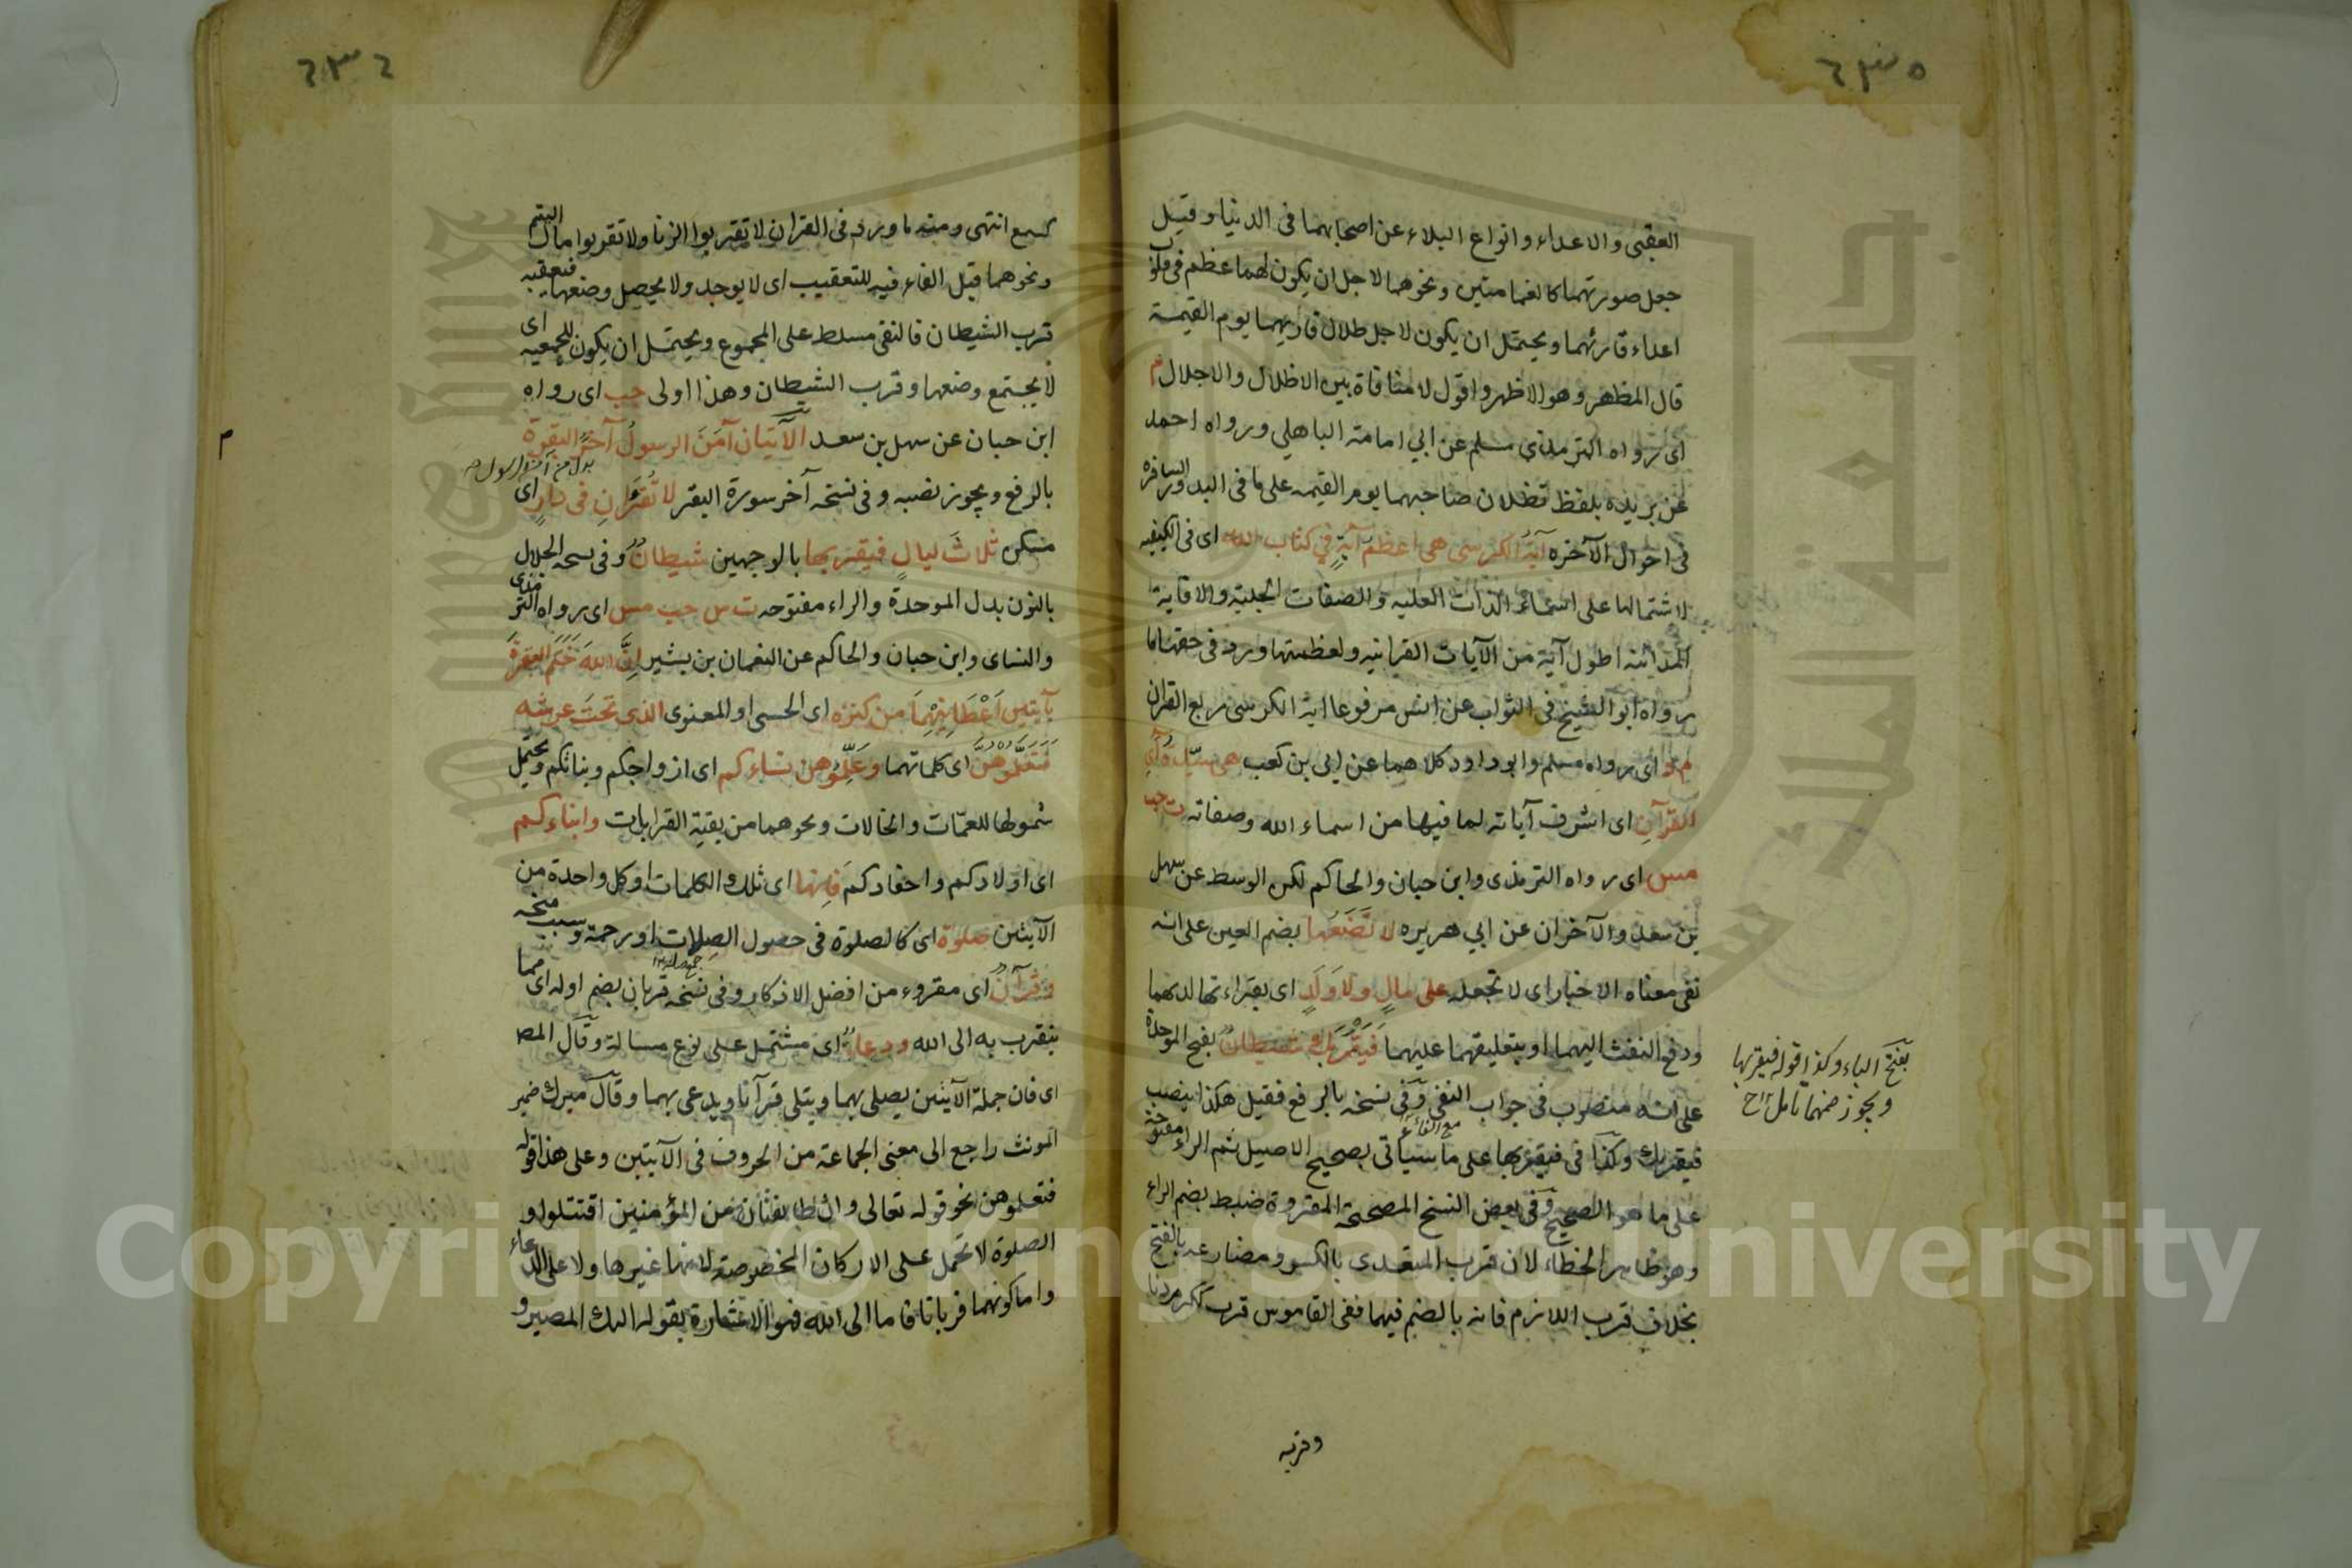 ٦٣٥
العقبى والاعداء وانواع البلاء عن اصحابهما فى الدنيا وقيل
جعل صورتهما كالغمامتين ونحوهما لاجل ان يكون لهما عظم فى قلوب
اعداء قارئهما ويحتمل ان يكون لاجل ظلال قاريهما يوم القيمة
قال المظهر وهو الاظهر واقول لا منافاة بين الاظلال والاجلال م
اى رواه مسلم عن ابي امامة الباهلي ورواه احمد
عن بريده بلفظ تظلان صاحبهما يوم القيمه على ما فى البدور السافره
فى احوال الآخره آية الكرسى هى اعظم آيةٍ في كتاب الله اى فى الكيفيه
لاشتمالها على اسماء الذات العليه والصفات الجليته والا فاية
المداينه اطول آية من الآيات القرانيه ولعظمتها ورد فى حقها ما
رواه ابو الشيخ فى الثواب عن انس مرفوعا اية الكرسى ربع القران
م د اى رواه مسلم وابو داود كلاهما عن ابي بن كعب هى سيّدة آي
القرآنِ اى اشرف آياته لما فيها من اسماء الله وصفاته ت حب
مس اى رواه الترمذى وابن حبان والحاكم لكن الوسط عن سهل
بن سعد والآخران عن ابي هريره لا تضعها بضم العين على انه
نفى معناه الاخبار اى لا تجعله على مالٍ ولا وَلَدٍ اى بقراءتها لديهما
ودفع النفث اليهما او بتعليقهما عليهما فَيَقْرَبَكَ شيطانٌ بفتح الموحدة
على انه منصوب فى جواب النفى وفى نسخه بالرفع فقيل هكذا بنصب
فيقربك وكذا فى فيقربها على ما سياتى مع الفاء بصحيح الاصيل ثم الراء مفتوحة
على ما هو الصحيح وفى بعض النسخ المصححة المقروة ضبط بضم الراء
وهو ظاهر الخطاء لان قرب المتعدى بالكسر ومضارعه بالفتح
بخلاف قرب اللازم فانه بالضم فيهما ففى القاموس قرب ككرم دنا
وقربه
بفتح الباء وكذا قوله فيقربها
ويجوز ضمهما تامل ١٢ ح
٦٣٦
كسمع انتهى ومنه ما ورد فى القران لا تقربوا الزنا ولا تقربوا مال اليتيم
ونحوهما قيل الفاء فيه للتعقيب اى لا يوجد ولا يحصل وضعها فيعقبه
قرب الشيطان فالنفى مسلط على المجموع ويحتمل ان يكون للجمعيه اى
لا يجتمع وضعها وقرب الشيطان وهذا اولى حب اى رواه
ابن حبان عن سهل بن سعد الآيتيان آمَنَ الرسولُ آخرَ البقرة
بدل من آمن الرسول
بالرفع ويجوز نصبه وفى نسخه آخر سورة البقر لا تُقْرَان فى دارٍ اى
مسكن ثلاثَ ليالٍ فيقربها بالوجهين شيطانٌ وفى نسخه الجلال
بالنون بدل الموحدة والراء مفتوحه ت س حب مس اى رواه الترمذى
والنساى وابن حبان والحاكم عن النعمان بن بشير اِنَّ اللهَ خَتَمَ البقرةَ
بآيتين اَعْطَانِيْهِمَا من كنزه اى الحسى او المعنوى الذى تحتَ عرشه
فَتَعَلَّمُوْهُنَّ اى كلماتهما وعَلِّمُوهنَّ نساءكم اى ازواجكم وبناتكم ويحتمل
شمولها للعمّات والخالات ونحوهما من بقية القرابات وابناءكم
اى اولادكم واحفادكم فانها اى تلك الكلمات او كل واحدة من
الآيتين صلوة اى كالصلوة فى حصول الصِلات او رحمة وسبب منحه
جمع صلة ١٢
وقرآنٌ اى مقروء من افضل الاذكار وفى نسخه قربان بضم اوله اى مما
يتقرب به الى الله ودعاءٌ اى مشتمل على نوع مسالة وقال المص
اى فان جملة الآيتين يصلى بهما ويتلى قرآنا ويدعى بهما وقال ميرك ضمير
المونث راجع الى معنى الجماعة من الحروف فى الآيتين وعلى هذا قوله
فتعلموهن نحو قوله تعالى وان طايفتان من المؤمنين اقتتلوا و
الصلوة لا تحمل على الاركان المخصوصة لانها غيرها ولا على الدعاء
واما كونهما قربانا فاما الى الله فهو الاشارة بقوله اليك المصير و
م